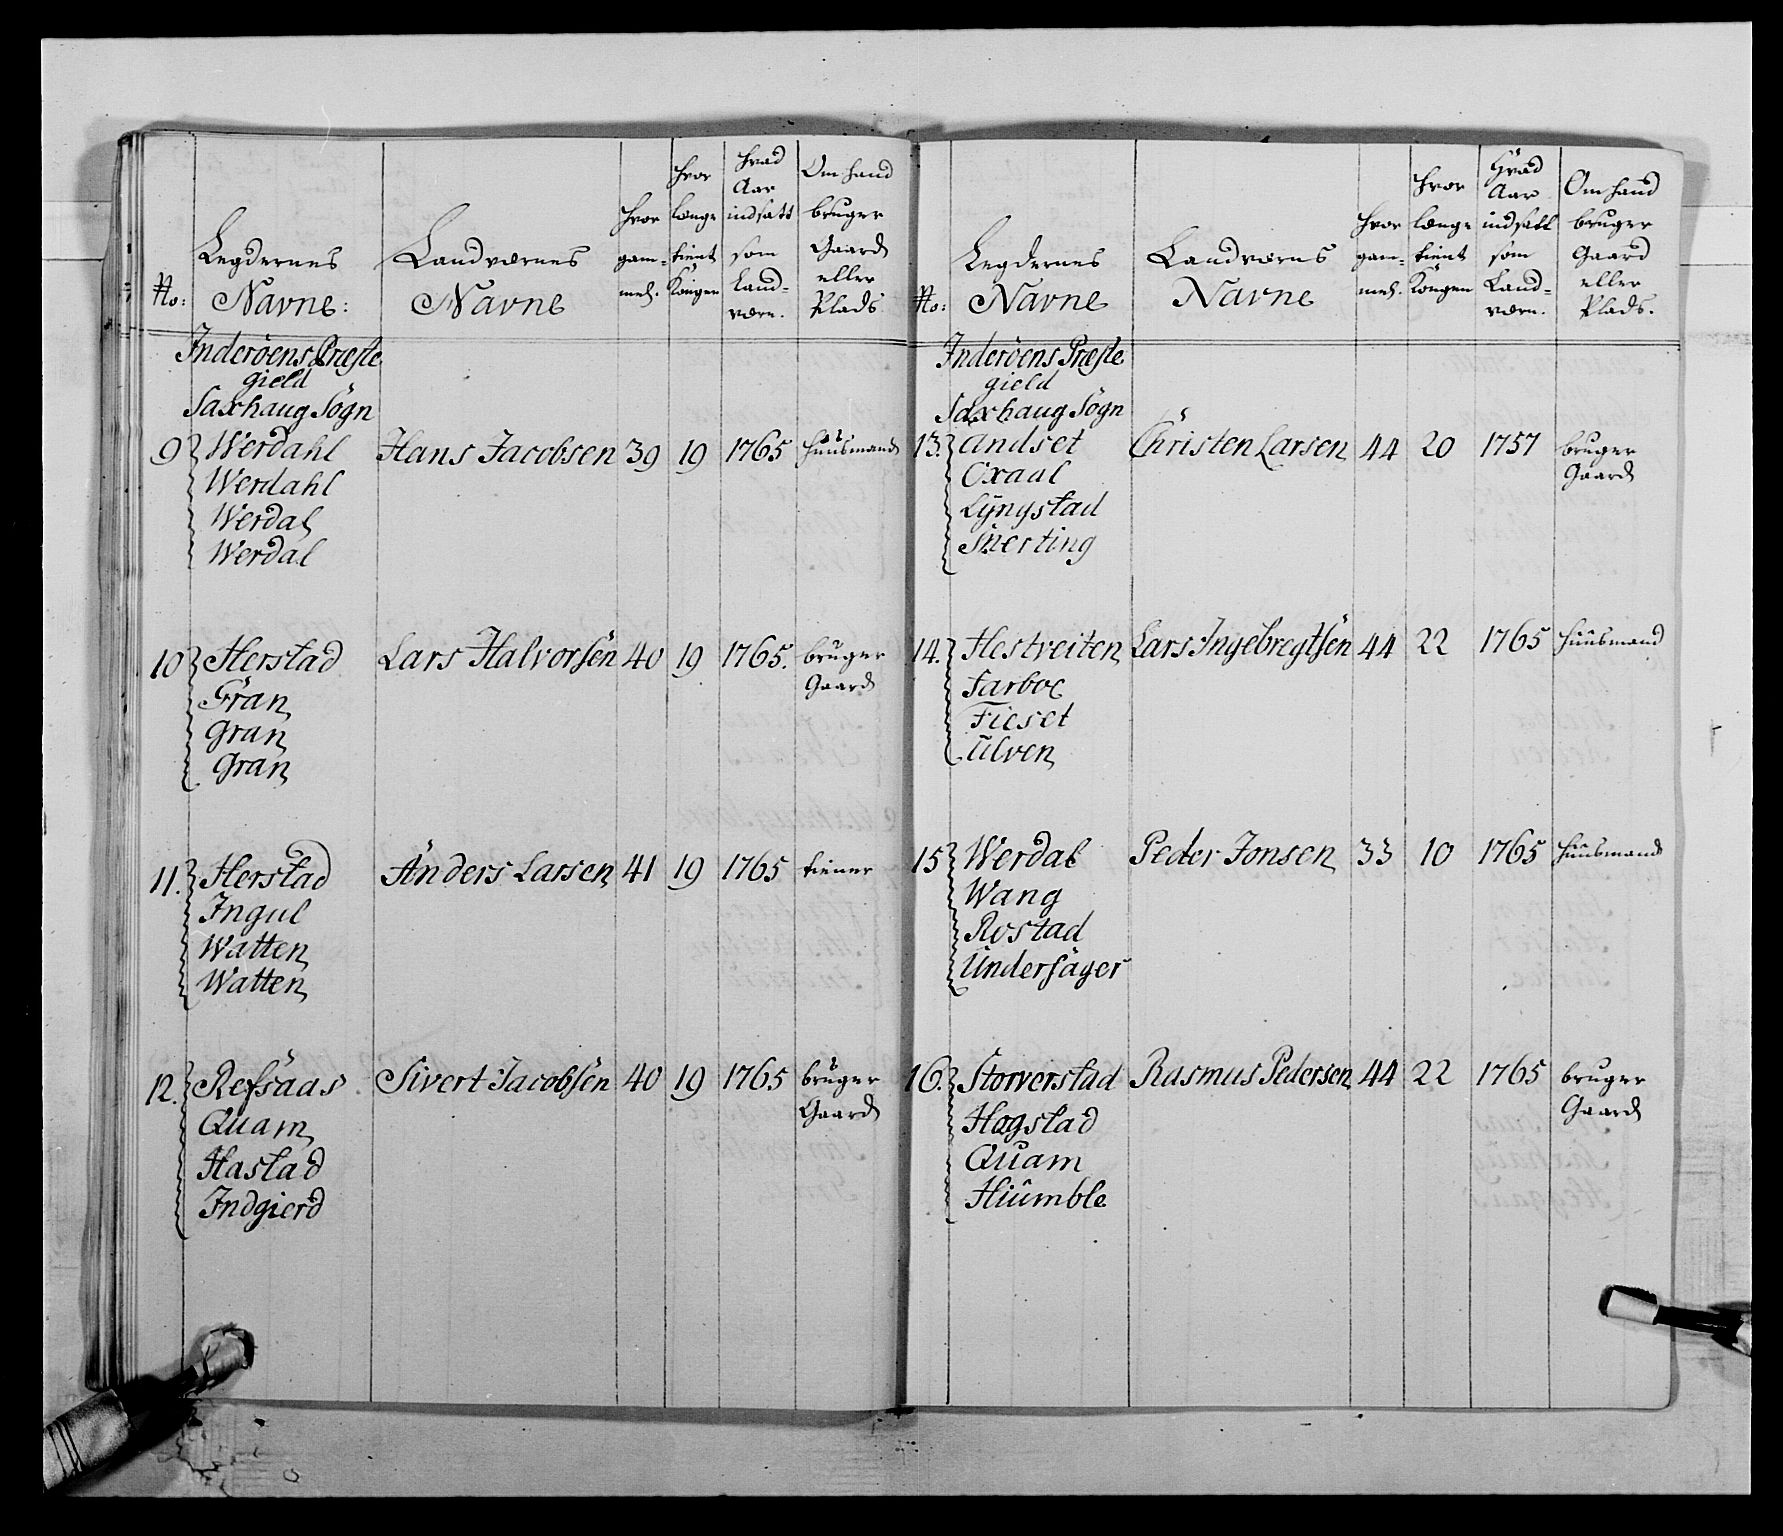 No:
Legdernes
Navne:
Landværnes
Navne
hvor
gam-
mel.
hvor
længe
tient
Kongen
hvad
Aar
indsatt
som
Land-
værn.
Om hand
bruger
Gaard
eller
Plads
Inderöens Præste
gield
Saxhaug Sogn
9 Werdahl Hans Jacobsen 39 19 1765 huusmand
Werdahl
Werdal
Werdal
10 Herstad Lars Halvorsen 40 19 1765. bruger
Gaard
Gran
Gran
Gran
11. Herstad Anders Larsen 41 19 1765 tiener
Ingul
Watten
Watten
12. Refsaas Sivert Jacobsen 40 19 1765 bruger
Gaard
Quam
Hastad
Indgierd
No:
Legdernes
Navne
Landværns
Navne
hvor
gam-
mel.
hvor
længe
tient
Kongen
Hvad
Aar
indsatt
som
Land-
værn.
Om hand
bruger
Gaard
eller
Plads.
Inderöens Præste
gield
Saxhaug Sogn
13. Andset Christen Larsen 44 20 1757 bruger
Gaard
Oxaal
Lyngstad
Snerting
14. Hestveiten Lars Ingebregtsen 44 22 1765 huusmand
Farboe
Fieset
Ulven
15 Werdal Peder Jonsen 33 10 1765 huusmand
Wang
Rostad
Undersäger
16. Storverstad Rasmus Pedersen 44 22 1765 bruger
Gaard
Hogstad
Quam
Hiumble